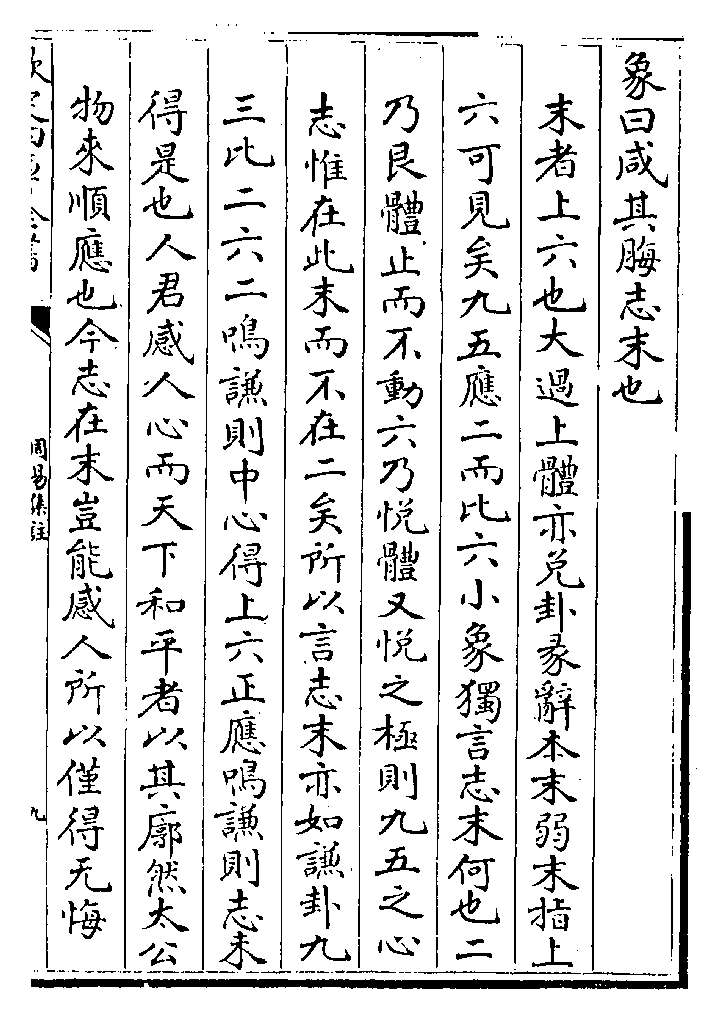 象曰咸其脢志末也
末者上六也大過上體亦兌卦彖辭本末弱末指上
六可見矣九五應二而比六小象獨言志末何也二
乃艮體止而不動六乃悅體又悅之極則九五之心
志惟在此末而不在二矣所以言志末亦如謙卦九
三比二六二鳴謙則中心得上六正應鳴謙則志未
得是也人君感人心而天下和平者以其廓然太公
物來順應也今志在末豈能感人所以僅得无悔
周易集註
九